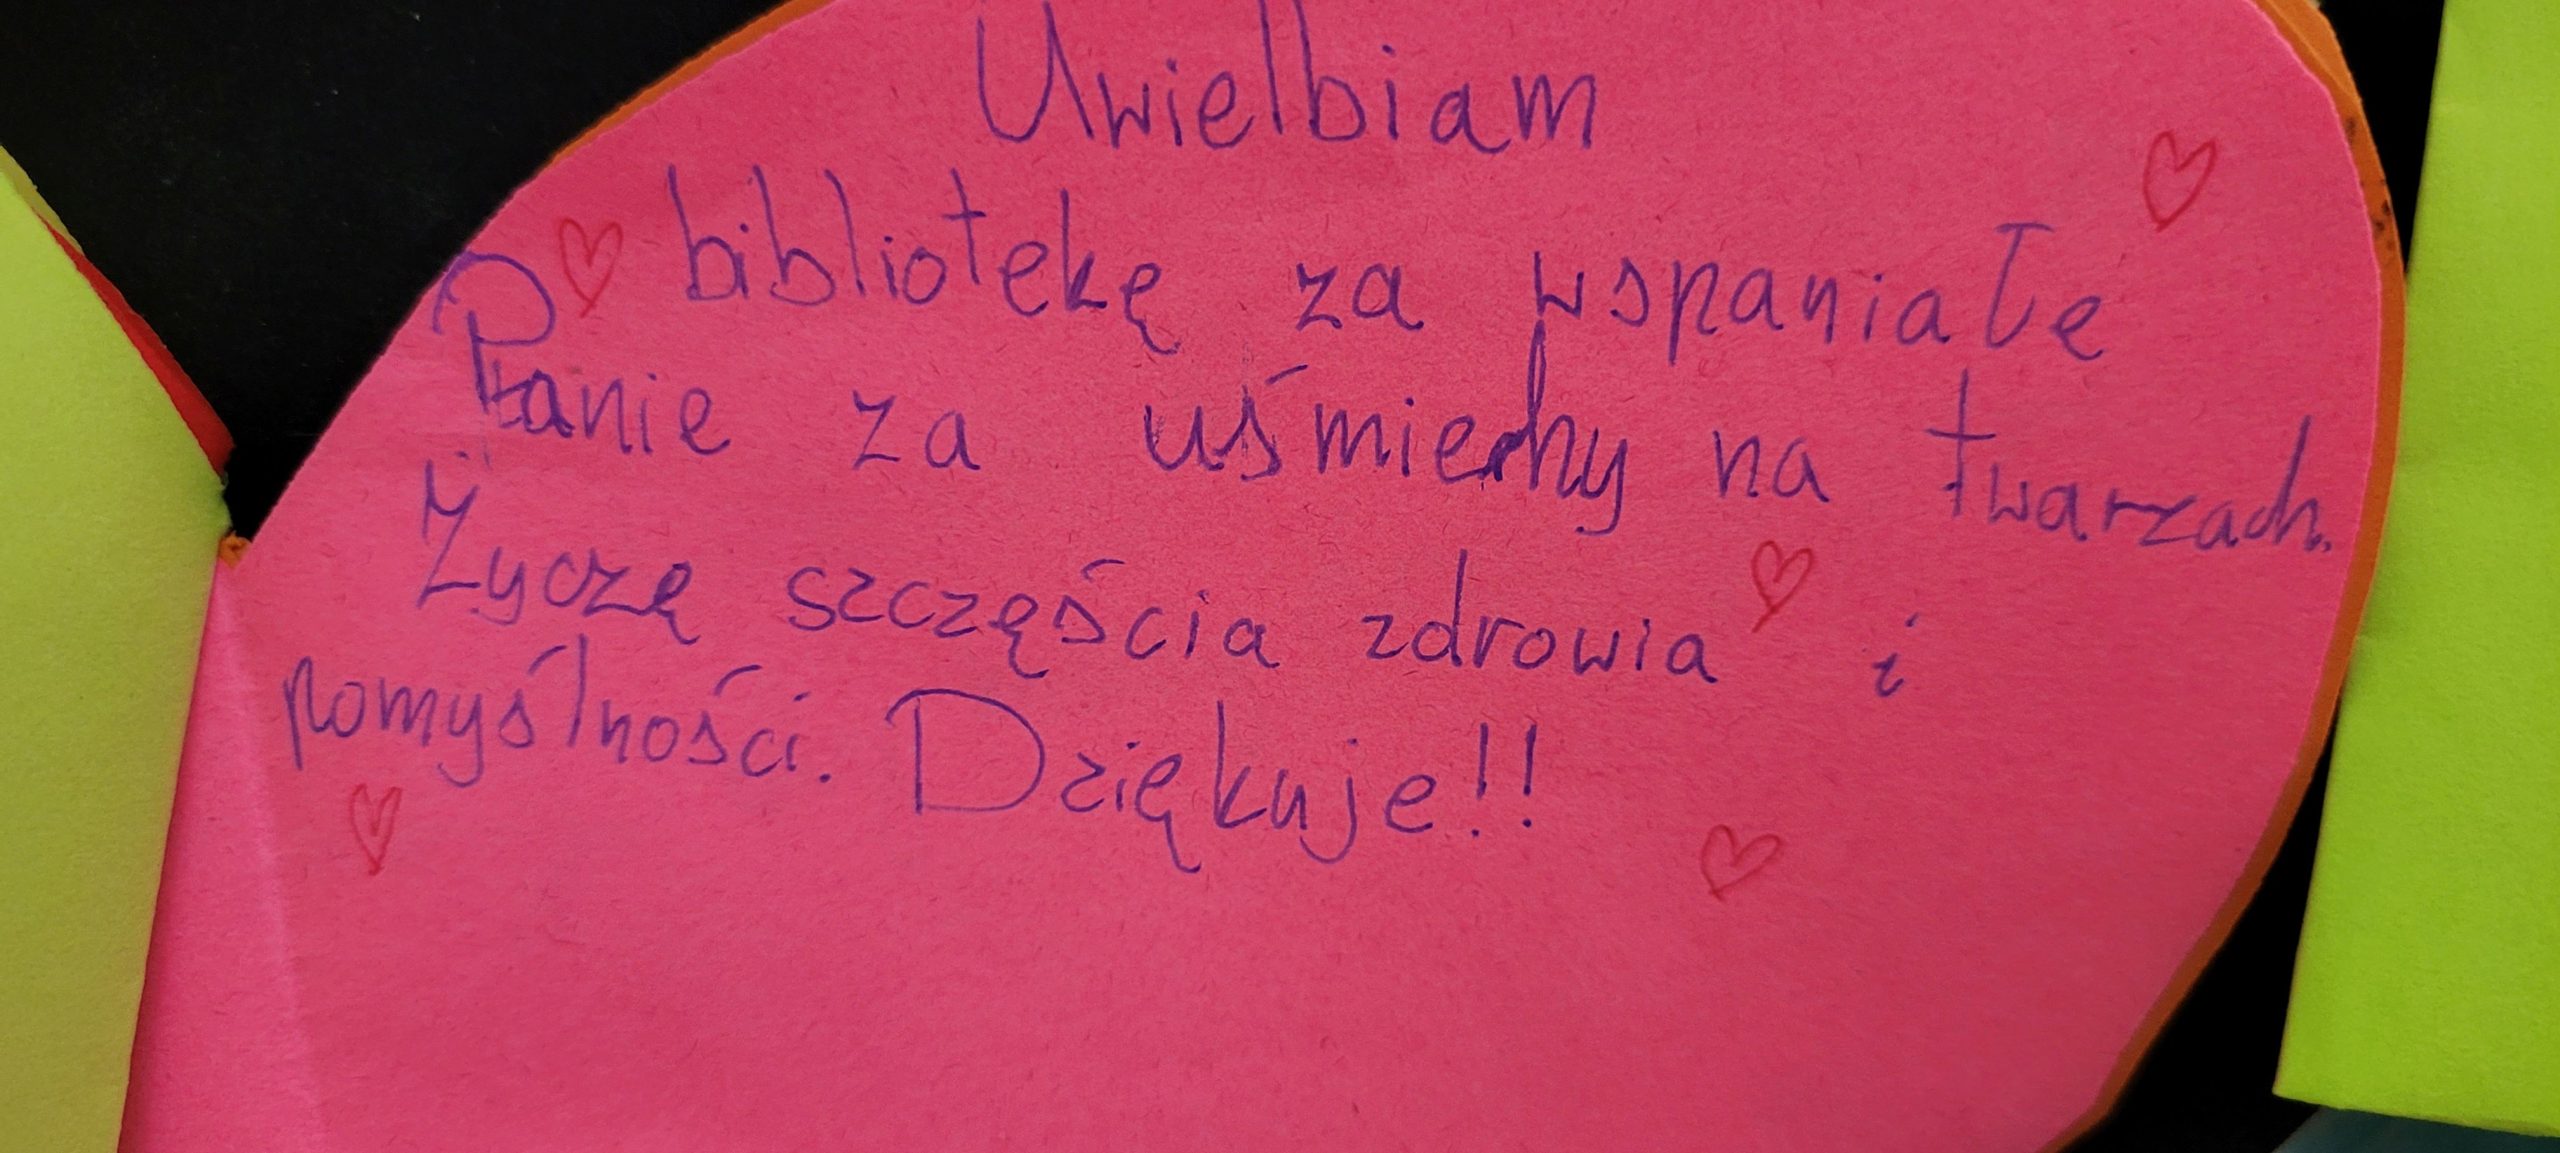 Uwielbiam
bibliotekę za wspaniałe
Panie za uśmiechy na twarzach.
Życzę szczęścia zdrowia i
pomyślności. Dziękuje!!